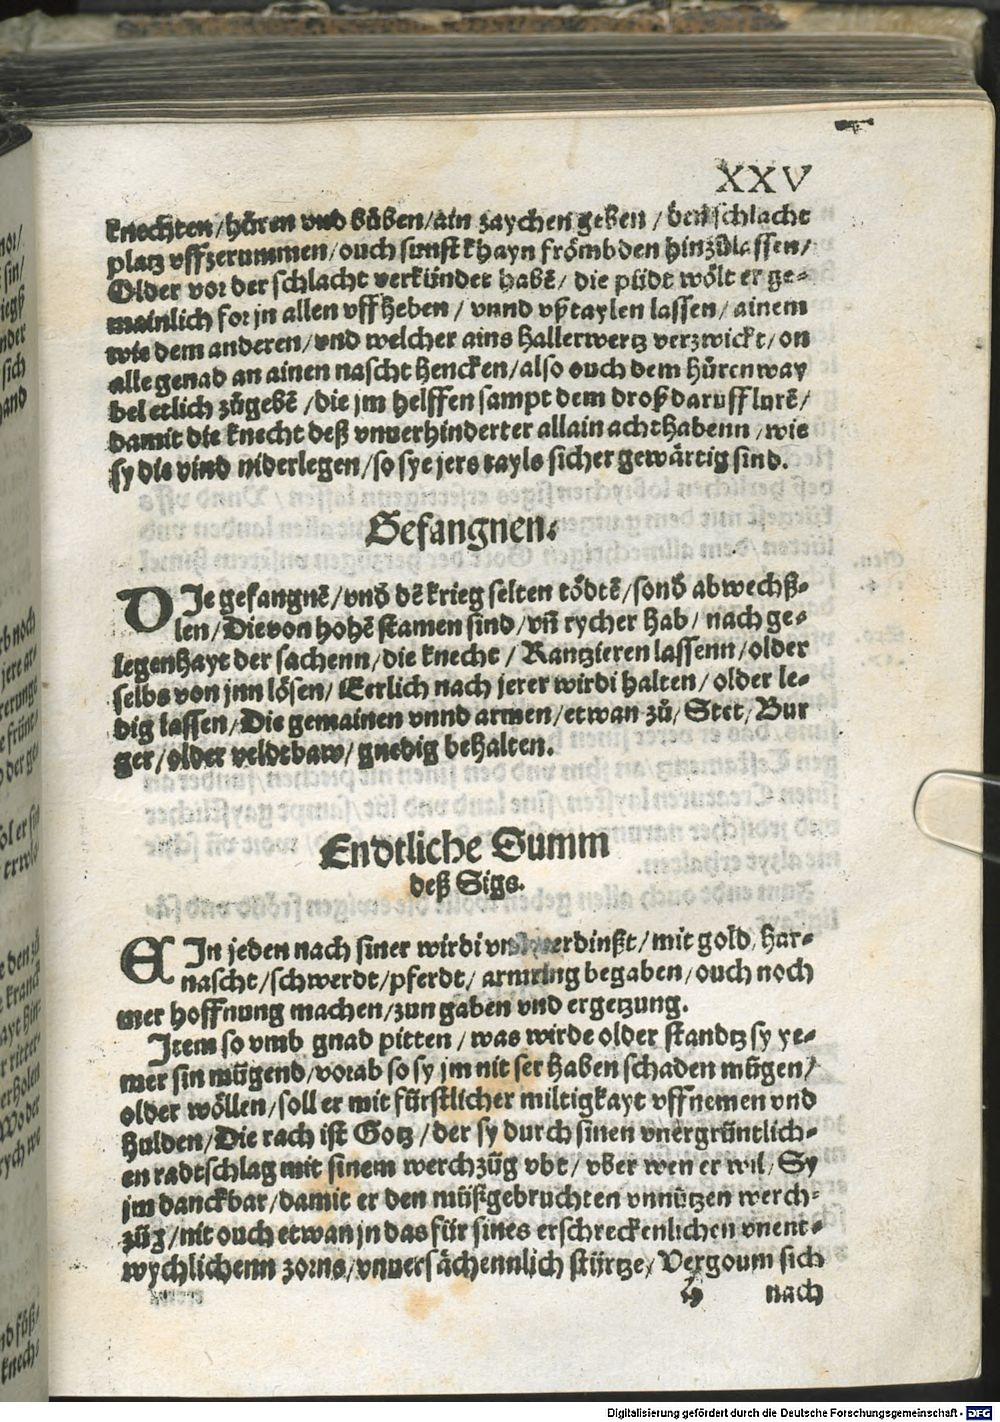 XXV
knechten/hůren vnd bůben/ain zaychen geben / den schlacht
platz vffzerummen/ouch sunst khayn frömbden hinzůlassen/
Older vor der schlacht verkündet habē/ die püdt wölt er ge-
mainlich for jn allen vffheben / vnnd vßtaylen lassen/ ainem
wie dem anderen/vnd welcher ains hallerwertz verzwickt/on
alle genad an ainen nascht hencken/also ouch dem hůren way
bel etlich zůgebē/die jm helffen sampt dem droß daruff lurē/
damit die knecht deß vnuerhinderter allain acht habenn/wie
sy die vind niderlegen/so sye jers tayls sicher gewärtig sind.
Gefangnen.
DIe gefangnē/vnd dē krieg selten tödtē/sond abwechß-
len/Die von hohē stamen sind/vn̄ rycher hab/ nach ge-
legenhayt der sachenn/die knecht / Rantzieren lassenn/older
selbs von jnn lösen/ Eerlich nach jerer wirdi halten/ older le-
dig lassen/Die gemainen vnnd armen/etwan zů/ Stet/ Bur
ger/older veldtbaw/ gnedig behalten.
Endtliche Summ
deß Sigs.
EIn jeden nach siner wirdi vnd verdinßt/mit gold/har-
nascht/schwerdt/pferdt/ armring begaben/ouch noch
mer hoffnung machen/zun gaben vnd ergetzung.
Item so vmb gnad pitten / was wirde older standtz sy ye-
mer sin mügend/vorab so sy jm nit ser haben schaden mügen/
older wöllen/soll er mit fürstlicher miltigkayt vffnemen vnd
hulden/Die rach ist Gotz/der sy durch sinen vnergrüntlich-
en radtschlag mit sinem werchzüg vbt/ vber wen er wil/ Sy
jm danckbar/damit er den müßgebruchten vnnützen werch-
züg/nit ouch etwan jn das für sines erschreckenlichen vnent-
wychlichenn zorns/vnuersächennlich stürtze/ Vergoum sich
nach
Digitalisierung gefördert durch die Deutsche Forschungsgemeinschaft - DFG